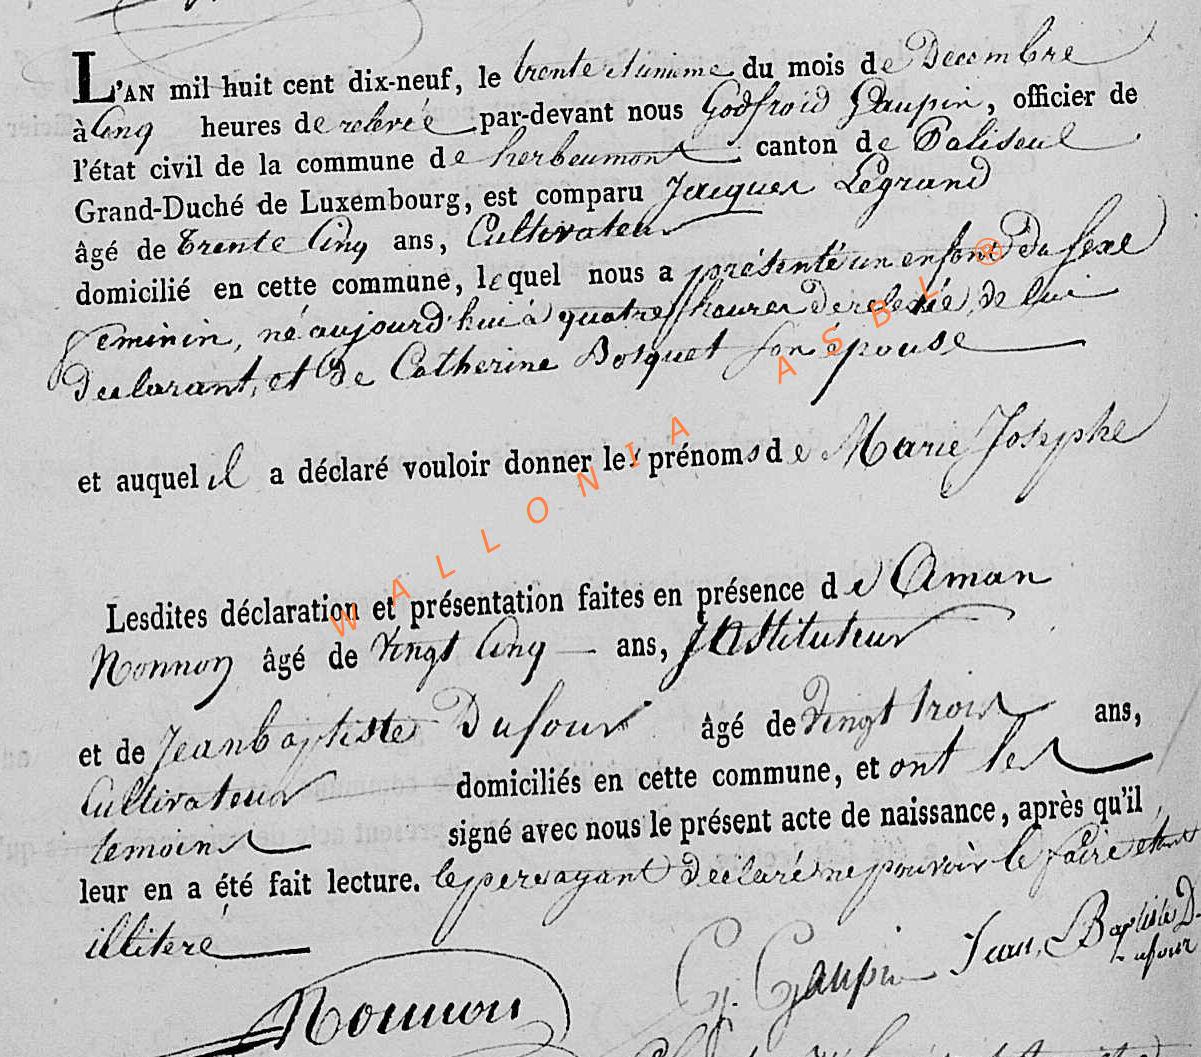 L'AN mil huit cent dix-neuf, le trente et unieme du mois de Decembre
à Cinq heures de relevée par-devant nous Godfroid Gaupin, officier de
l'état civil de la commune de herbeumont canton de Paliseul
Grand-Duché de Luxembourg, est comparu Jacques Legrand
âgé de trente Cinq ans, Cultivateur
domicilié en cette commune, lequel nous a présenté un enfant du sexe
feminin, né aujourd'hui à quatre heures de relevée, de lui
declarant, et de Catherine Bosquet son épouse
et auquel il a déclaré vouloir donner les prénoms de Marie Josephe
Lesdites déclaration et présentation faites en présence de Aman
Nonnon âgé de vingt Cinq ans, Instituteur
et de Jean baptiste Dufour âgé de vingt trois ans,
Cultivateur domiciliés en cette commune, et ont les
temoins signé avec nous le présent acte de naissance, après qu'il
leur en a été fait lecture. le pere ayant declaré ne pouvoir le faire étant
illiteré
Nonnon G. Gaupin Jean Baptiste D-
ufour
WALLONIA ASBL ®